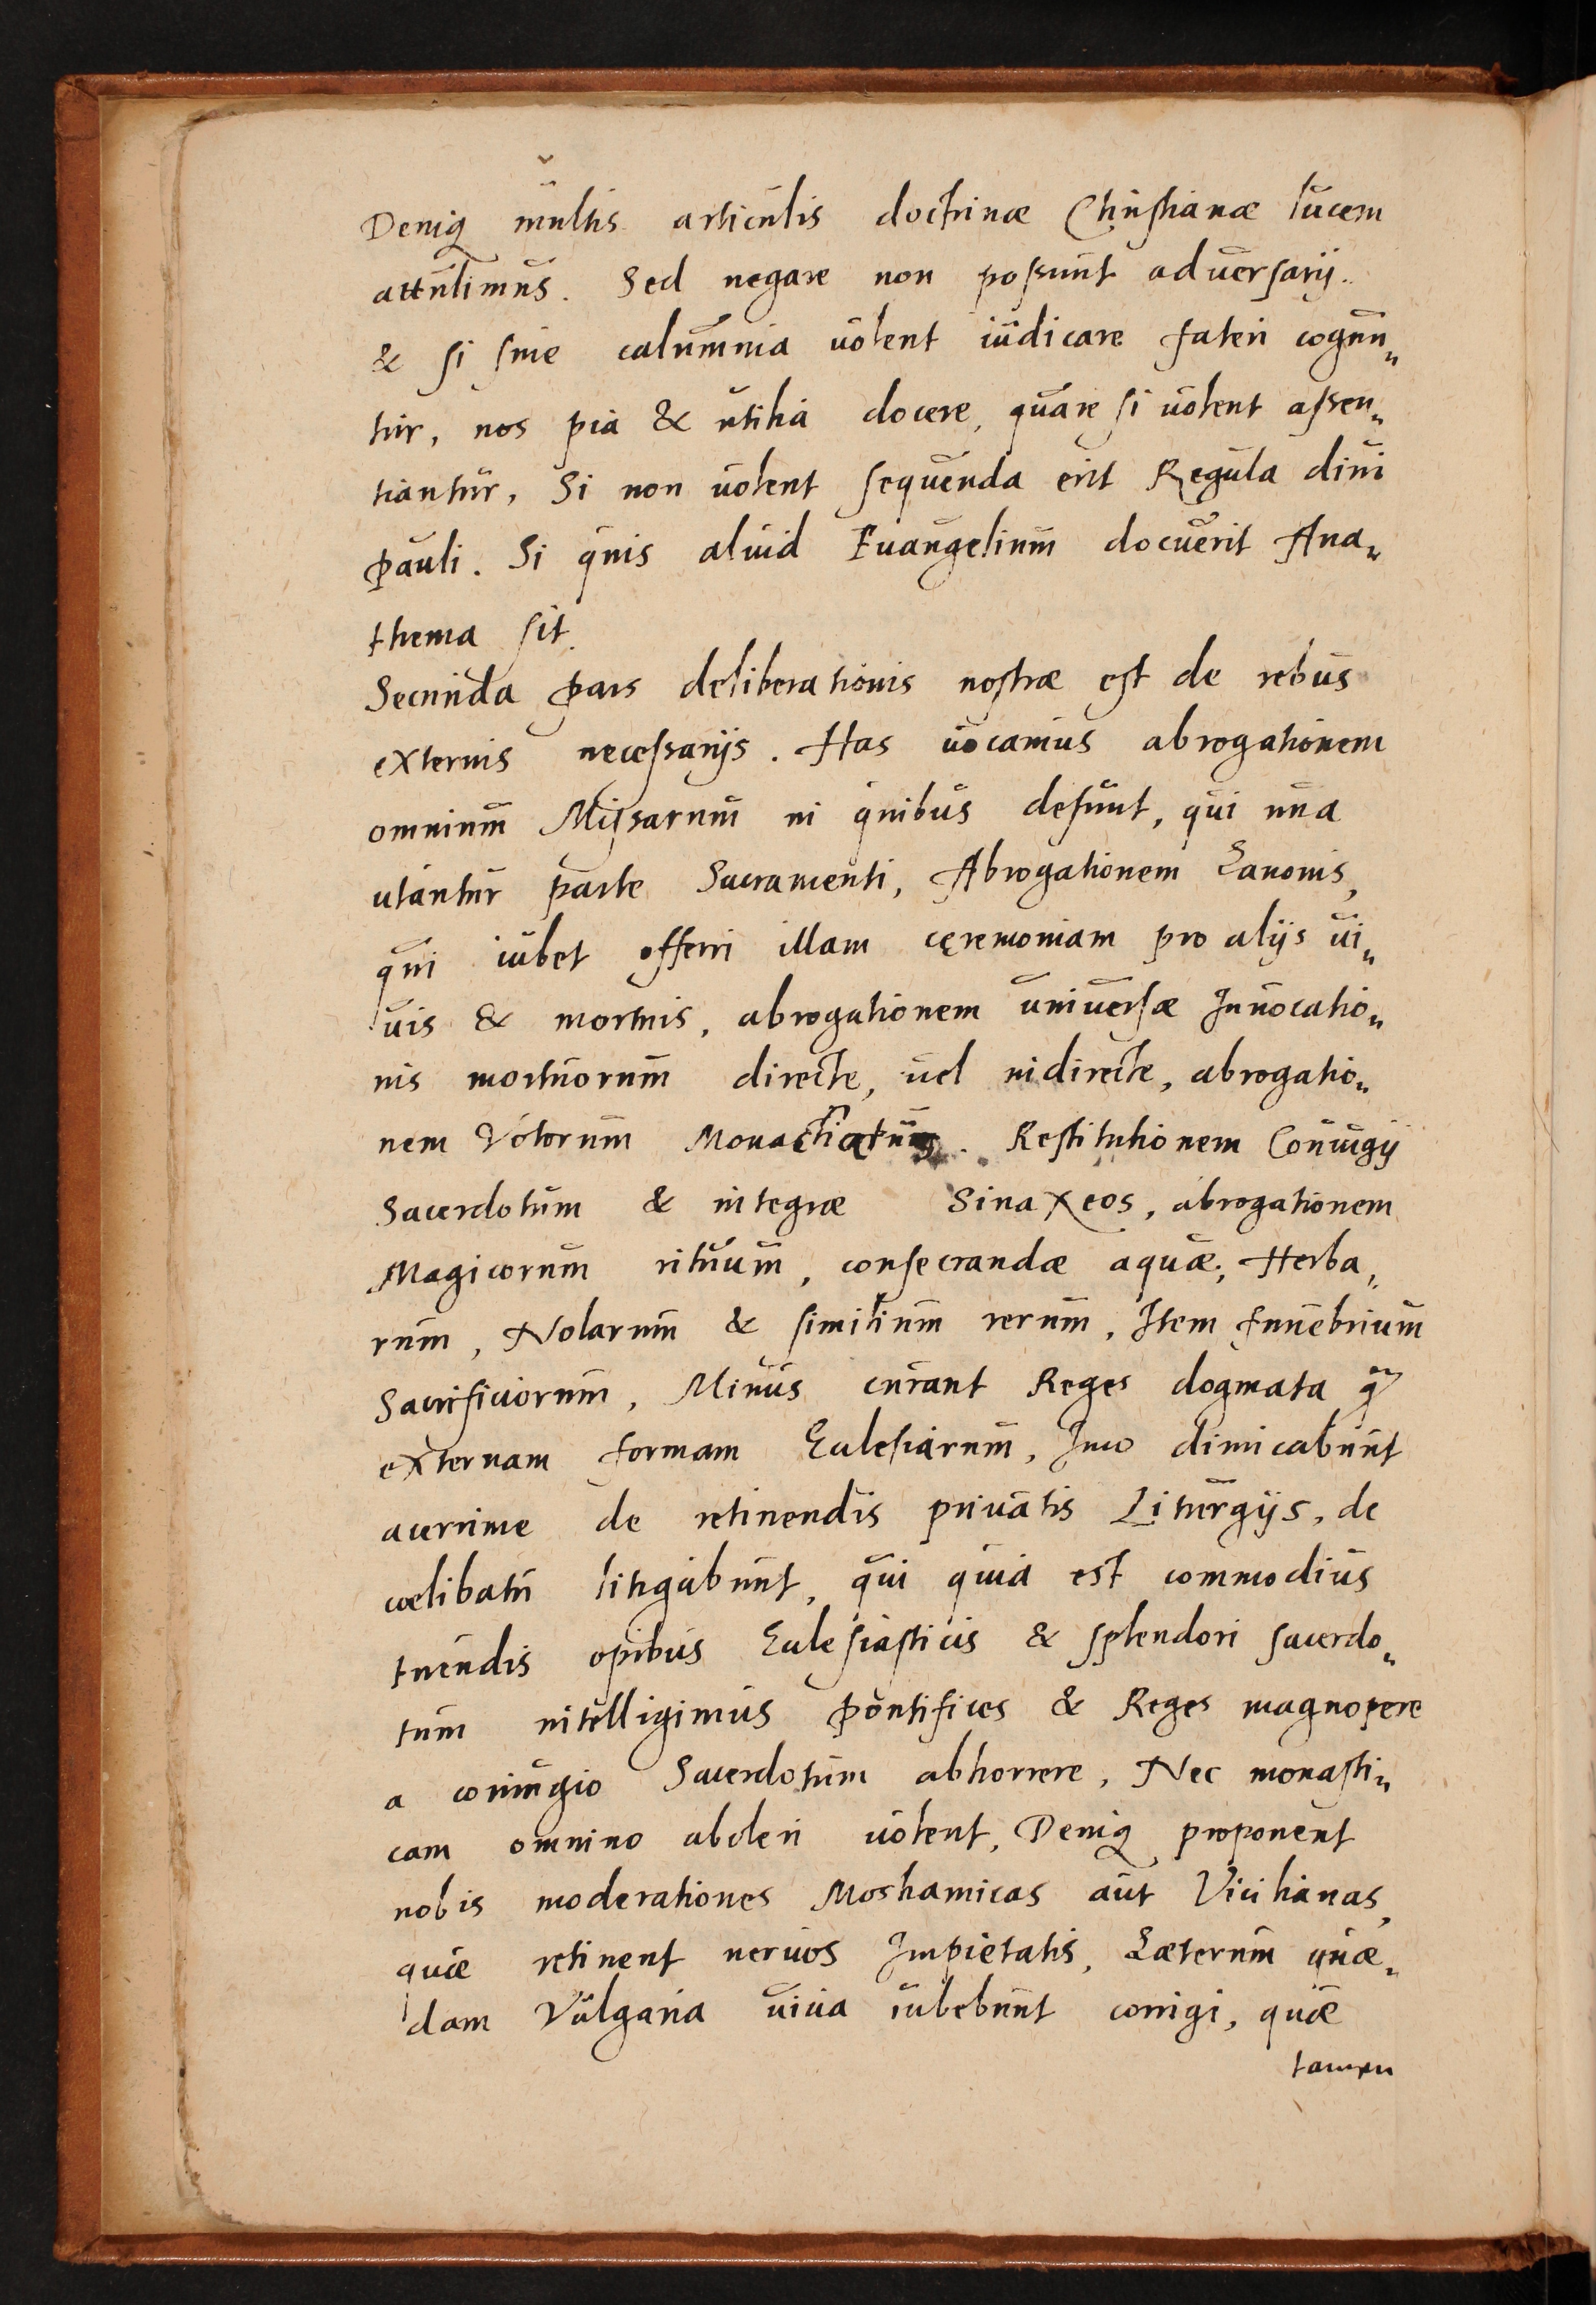 Deniq multis articulis doctrinæ Christianæ lucem
attulimus. Sed negare non possunt aduersarij.
& si sine calumnia uolent iudicare fateri cogun„
tur, nos pia & utilia docere, quare si uolent assen„
tiantur, Si non uolent sequenda erit Regula diui
Pauli. Si quis aliud Euangelium docuerit Ana„
thema sit.
Secunda Pars deliberationis nostræ est de rebus
externis necessarijs. Has uocamus abrogationem
omnium Missarum in quibus desunt, qui una
utantur parte Sacramenti, Abrogationem Canonis,
qui iubet offerri illam cęremoniam pro alijs ui„
uis & mortuis, abrogationem uniuersæ Inuocatio„
nis mortuorum directe, uel indirecte, abrogatio„
nem Votorum Restitutionem Coniugij
Sacerdotum & integræ Sinaxeos, abrogationem
Magicorum rituum, consecrandæ aquæ, Herba„
rum, Nolarum & similium rerum, Item funebrium
Sacrificiorum, Minus curant Reges dogmata q̃
externam formam Ecclesiarum, Imo dimicabunt
acerrime de retinendis priuatis Liturgijs, de
cœlibatu litigabunt, qui quia est commodius
tuendis opibus Ecclesiasticis & splendori sacerdo„
tum intelligimus Pontifices & Reges magnopere
a coniugio Sacerdotum abhorrere, Nec monasti„
cam omnino aboleri uolent, Deniq proponent
nobis moderationes Moshamicas aut Vicilianas,
quæ retinent neruos Impietatis, Cæterum quæ„
dam Vulgaria uicia iubebunt corrigi, quæ
tamen